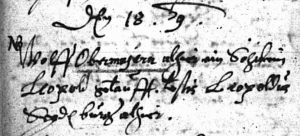 Den 18 39.
Wolff Obermayern alhie ein Söhnlein
Leopold getaufft. testis Leopoldus
burg alhier.